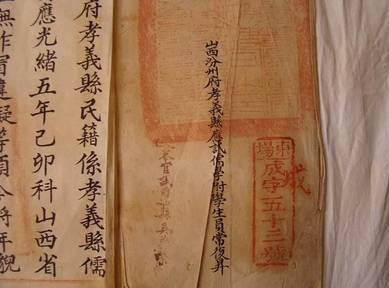 東場
成字五十三號
山西汾州府孝義縣應試儒學附學生員常復昇
府孝義縣民籍係孝義縣儒
應光緒五年己卯科山西省
無作冒違礙等項今將年貌